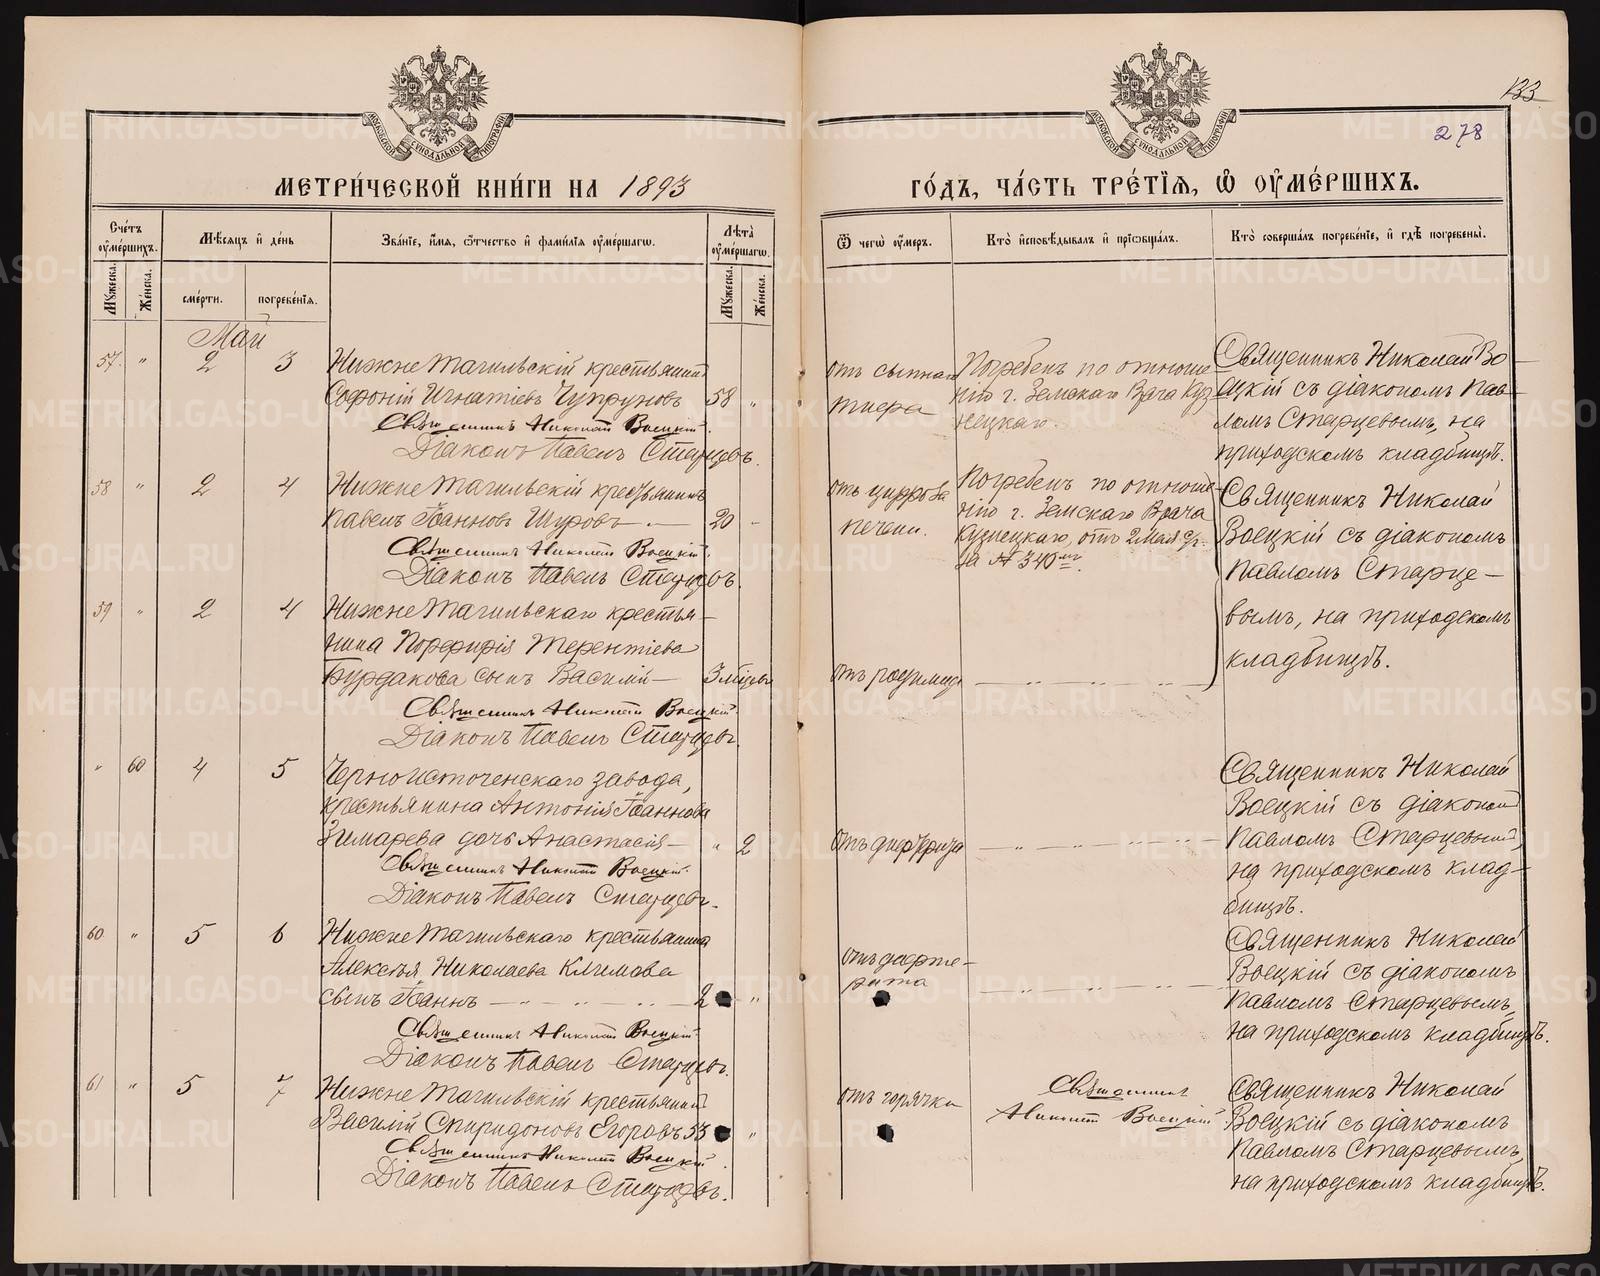 133
278
МЕТРИ́ЧЕСКОЙ КНИ́ГИ НА 1893
ГО́ДЪ, ЧА́СТЬ ТРЕ́ТІѦ, Ѡ ОУ҆МЕ́РШИХЪ.
МОСКОВСКОЙ СѴНОДАЛЬНОЙ ТИПОГРАФІИ
МОСКОВСКОЙ СѴНОДАЛЬНОЙ ТИПОГРАФІИ
Сче́тъ оу҆ме́ршихъ.
Мꙋ́жеска.
Же́нска.
Мѣ́сѧцъ и҆ де́нь
сме́рти.
погребе́нїѧ.
Зва́нїе, и҆́мѧ, ѻ҆́тчество и҆ фами́лїѧ оу҆ме́ршагѡ.
Лѣ́та оу҆ме́ршагѡ.
Мꙋ́жеска.
Же́нска.
Ѿ чегѡ̀ оу҆́меръ.
Кто̀ и҆сповѣ́дывалъ и҆ прїѡбща́лъ.
Кто̀ соверша́лъ погребе́нїе, и҆ гдѣ̀ погребены̀.
Май
57. " 2 3 Нижне Тагильскій крестьянинъ
Софоній Игнатіевъ Чупруновъ 58 "
Священникъ Николай Воецкій.
Діаконъ Павелъ Старцевъ.
отъ сыпнаго
тифа
Погребенъ по отноше
нію г. Земскаго Врача Куз
нецкаго.
Священникъ Николай Во
ецкій съ діакономъ Пав
ломъ Старцевымъ, на
приходскомъ кладбищѣ.
58 " 2 4 Нижне Тагильскій крестьянинъ
Павелъ Іоанновъ Шуровъ 20 -
Священникъ Николай Воецкій.
Діаконъ Павелъ Старцевъ.
отъ цирроза
печени.
Погребенъ по отноше
нію г. Земскаго Врача
Кузнецкаго, отъ 2 Мая с/г.
за № 340
Священникъ Николай
Воецкій съ діакономъ
Павломъ Старце-
вымъ, на приходскомъ
кладбищѣ.
59 " 2 4 Нижне Тагильскаго крестья-
нина Порфирія Терентіева
Бурдакова сынъ Василій 3 мѣсяц
Священникъ Николай Воецкій.
Діаконъ Павелъ Старцевъ.
отъ родимца
" 60 4 5 Черноисточенскаго завода,
крестьянина Антонія Іоаннова
Зимарева дочь Анастасія " 2
Священникъ Николай Воецкій.
Діаконъ Павелъ Старцевъ.
отъ дифтерита
Священникъ Николай
Воецкій съ діакономъ
Павломъ Старцевымъ,
на приходскомъ клад-
бищѣ.
60 " 5 6 Нижне Тагильскаго крестьянина
Алексѣя Николаева Климова
сынъ Іоаннъ 2 "
Священникъ Николай Воецкій.
Діаконъ Павелъ Старцевъ.
отъ дифте-
рита
Священникъ Николай
Воецкій съ діакономъ
Павломъ Старцевымъ,
на приходскомъ кладбищѣ.
61 " 5 7 Нижне Тагильскій крестьянинъ
Василій Спиридоновъ Егоровъ 53 "
Священникъ Николай Воецкій.
Діаконъ Павелъ Старцевъ.
отъ горячки
Священникъ
Николай Воецкій
Священникъ Николай
Воецкій съ діакономъ
Павломъ Старцевымъ,
на приходскомъ кладбищѣ.
METRIKI.GASO-URAL.RU